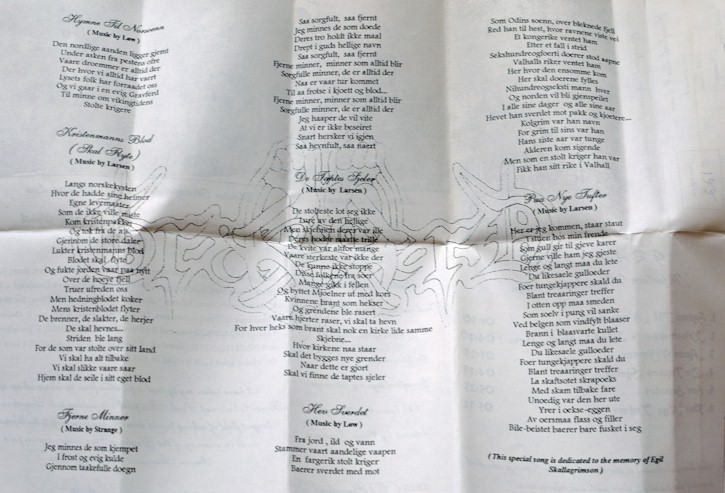 Hymne Til Norroenn
( Music by Løw )
Den nordlige aanden ligger gjemt
Under asken fra pestens ofre
Vaare droemmer er alltid der
Der hvor vi alltid har vaert
Lysets folk har forraadet oss
Og vi gaar i en evig Gravferd
Til minne om vikingtidens
Stolte krigere
Kristenmanns Blod
( Skal Flyte )
(Music by Larsen )
Langs norskekysten
Hvor de hadde sine helliner
Egne levemaater
Som de ikke ville miste
Kom kristenpakket
Og tok fra de alt
Gjennom de store daler
Lukter kristenmanns blod
Blodet skal flyte
Og fukte jorden vaar paa nytt
Over de hoeye fjell
Truer ufreden oss
Men hedningblodet koker
Mens kristenblodet flyter
De brenner, de slakter, de herjer
De skal hevnes...
Striden ble lang
For de som var stolte over sitt land
Vi skal ha alt tilbake
Vi skal slikke vaare saar
Hjem skal de seile i sitt eget blod
Fjerne Minner
( Music by Strange )
Jeg minnes de som kjempet
I frost og evig kulde
Gjennom taakefulle doegn
Saa sorgfult, saa fjernt
Jeg minnes de som doede
Deres tro holdt ikke maal
Drept i guds hellige navn
Saa sorgfult, saa fjernt
Fjerne minner, minner som alltid blir
Sorgfulle minner, de er alltid der
Naa er vaar tur kommet
Til aa frotse i kjoett og blod...
Fjerne minner, minner som alltid blir
Sorgfulle minner, de er alltid der
Jeg haaper de vil vite
At vi er ikke beseiret
Snart hersker vi igjen
Saa hevnfult, saa naert
De Taptes Sjeler
(Music by Larsen )
De stolteste lot seg ikke
Lure av den hellige
Men skjebnen deres var ille
Deres hoder maatte trille
De kvite var altfor mange
Vaare sterkeste var ikke der
De kunne ikke stoppe
Disse falkene fra soer
Mange gikk i fellen
Og byttet Mjoelner ut med kors
Kvinnene brant som hekser
Og grendene ble rasert
Vaare hjerter raser, vi skal ta hevn
For hver heks som brant skal nok en kirke lide samme
Skjebne...
Hvor kirkene naa staar
Skal det bygges nye grender
Naar dette er gjort
Skal vi finne de taptes sjeler
Hev Sverdet
( Music by Løw )
Fra fjord , ild og vann
Stammer vaart aandelige vaapen
En fargerik stolt kriger
Baerer sverdet med mot
Som Odins soenn, over bleknede fjell
Red han til hest, hvor ravnene viste vei
Et kongerike ventet ham
Etter et fall i strid
Sekshundreogfoerti doerer stod aapne
Valhalls riker ventet ham
Her hvor den ensomme kom
Her skal doerene fylles
Nihundreogseksti mann hver
Og norden vil bli gjenspeilet
I alle sine dager og alle sine aar
Hevet han sverdet mot pakk og kjoetere...
Kolgrim var han navn
For grim til sins var han
Hans siste aar var tunge
Alderen kom sigende
Men som en stolt kriger han var
Fikk han sitt rike i Valhall
Paa Nye Tufter
( Music by Larsen )
Her er jeg kommen, staar staut
I stuer hos min frende
Som gull gir til gjeve karer
Gjerne ville ham jeg gjeste
Lenge og langt maa du lete
Du likesaele gulloeder
Foer tungekjappere skald du
Blant treaaringer treffer
I otten opp maa smeden
Som soelv i pung vil sanke
Ved belgen som vindfylt blaaser
Brann i blaasvarte kullet
Lenge og langt maa du lete
Du likesaele gulloeder
Foer tungekjappere skald du
Blant treaaringer treffer
La skaftsotet skrapoeks
Med skam tilbake fare
Unoedig var den her ute
Yrer i oekse-eggen
Av oersmaa flass og filler
Bile-beistet baerer bare fusket i seg
( This special song is dedicated to the memory of Egil
Skallagrimson )